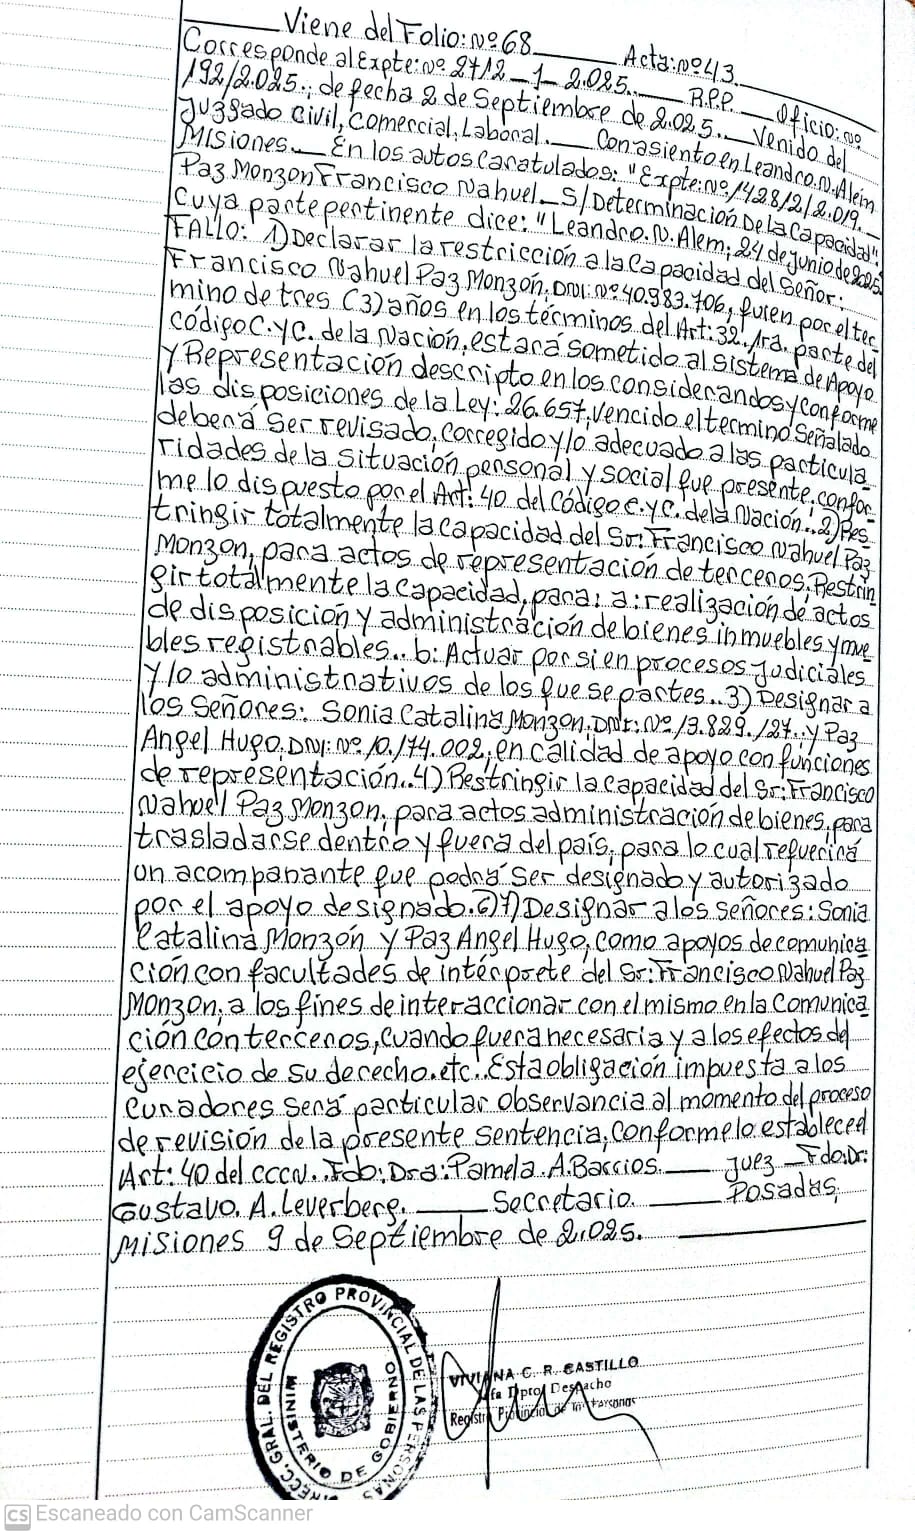 Viene del Folio: Nº 68 Acta: Nº 43.
Corresponde al Expte: Nº 2712 - 1 - 2.025. R.P.P. Oficio: Nº
192/2.025., de fecha 2 de Septiembre de 2.025. Venido del
Juzgado Civil, Comercial, Laboral. Con asiento en Leandro. N. Alem
Misiones. En los autos Caratulados: "Expte: Nº 1428/2/2.019.
Paz Monzon Francisco Nahuel S/ Determinacion De la Capacidad".
Cuya parte pertinente dice: "Leandro. N. Alem; 24 de junio de 2.025
FALLO: 1) Declarar la restricción a la Capacidad del Señor:
Francisco Nahuel Paz Monzón, DNI: Nº 40.983.706, quien por el tér
mino de tres (3) años en los términos del Art: 32. 1ra. parte del
código C. y C. de la Nación, estará sometido al sistema de Apoyo
y Representación descripto en los considerandos y conforme
las disposiciones de la Ley: 26.657, vencido el termino señalado
deberá ser revisado, corregido y/o adecuado a las particula
ridades de la situación personal y social que presente, confor
me lo dispuesto por el Art: 40 del Código C. y C. de la Nación.. 2) Res
tringir totalmente la capacidad del Sr: Francisco Nahuel Paz
Monzon, para actos de representación de terceros; Restrin
gir totalmente la Capacidad, para: a: realización de actos
de disposición y administración de bienes inmuebles y mue
bles registrables.. b: Actuar por si en procesos Judiciales
y/o administrativos de los que se partes.. 3) Designar a
los Señores: Sonia Catalina Monzon, DNI: Nº 13.829.127.. y Paz
Angel Hugo, DNI: Nº 10.174.002, en calidad de apoyo con funciones
de representación. 4) Restringir la capacidad del Sr: Francisco
Nahuel Paz Monzon, para actos administración de bienes, para
trasladarse dentro y fuera del país, para lo cual requerirá
un acompanante que podrá ser designado y autorizado
por el apoyo designado. 6) 7) Designar a los señores: Sonia
Catalina Monzón y Paz Angel Hugo, como apoyos de comunica
ción con facultades de intérprete del Sr: Francisco Nahuel Paz
Monzon, a los fines de interaccionar con el mismo en la Comunica
ción con terceros, cuando fuera necesaria y a los efectos del
ejercicio de su derecho. etc.. Esta obligación impuesta a los
curadores será particular observancia al momento del proceso
de revisión de la presente sentencia, conforme lo estableced
Art: 40 del CCCN.. Fdo: Dra: Pamela. A. Barrios. Juez Fdo: Dr:
Gustavo. A. Leverberg. Secretario. Posadas,
Misiones 9 de Septiembre de 2.025.
DIRECC. GRAL. DEL REGISTRO PROVINCIAL DE LAS PERSONAS
MINISTERIO DE GOBIERNO
VIVIANA C. R. CASTILLO
Despacho
Registro Provincial de las Personas
CS Escaneado con CamScanner